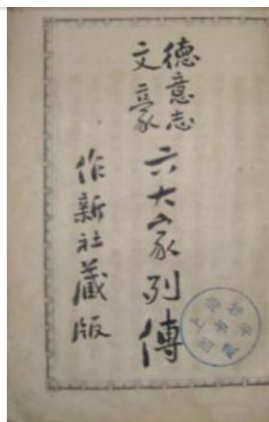 德意志
文豪
六大家列傳
作新社藏版